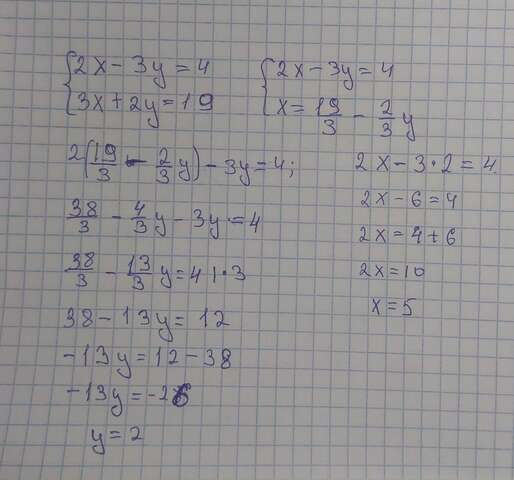 {2x - 3y = 4
{3x + 2y = 19
{2x - 3y = 4
{x = 19/3 - 2/3 y
2(19/3 - 2/3 y) - 3y = 4;
38/3 - 4/3 y - 3y = 4
38/3 - 13/3 y = 4 | · 3
38 - 13y = 12
-13y = 12 - 38
-13y = -26
y = 2
2x - 3 · 2 = 4
2x - 6 = 4
2x = 4 + 6
2x = 10
x = 5